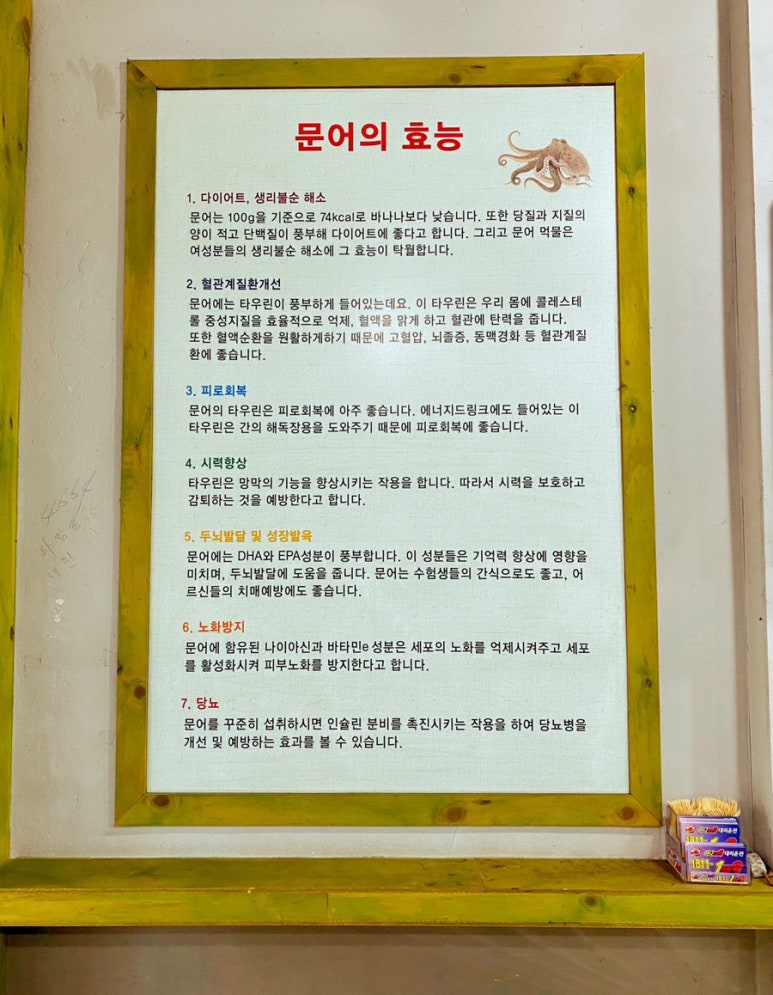 문어의 효능
1. 다이어트, 생리불순 해소
문어는 100g을 기준으로 74kcal로 바나나보다 낮습니다. 또한 당질과 지질의
양이 적고 단백질이 풍부해 다이어트에 좋다고 합니다. 그리고 문어 먹물은
여성분들의 생리불순 해소에 그 효능이 탁월합니다.
2. 혈관계질환개선
문어에는 타우린이 풍부하게 들어있는데요. 이 타우린은 우리 몸에 콜레스테
롤 중성지질을 효율적으로 억제, 혈액을 맑게 하고 혈관에 탄력을 줍니다.
또한 혈액순환을 원활하게하기 때문에 고혈압, 뇌졸증, 동맥경화 등 혈관계질
환에 좋습니다.
3. 피로회복
문어의 타우린은 피로회복에 아주 좋습니다. 에너지드링크에도 들어있는 이
타우린은 간의 해독장용을 도와주기 때문에 피로회복에 좋습니다.
4. 시력향상
타우린은 망막의 기능을 향상시키는 작용을 합니다. 따라서 시력을 보호하고
감퇴하는 것을 예방한다고 합니다.
5. 두뇌발달 및 성장발육
문어에는 DHA와 EPA성분이 풍부합니다. 이 성분들은 기억력 향상에 영향을
미치며, 두뇌발달에 도움을 줍니다. 문어는 수험생들의 간식으로도 좋고, 어
르신들의 치매예방에도 좋습니다.
6. 노화방지
문어에 함유된 나이아신과 바타민e 성분은 세포의 노화를 억제시켜주고 세포
를 활성화시켜 피부노화를 방지한다고 합니다.
7. 당뇨
문어를 꾸준히 섭취하시면 인슐린 분비를 촉진시키는 작용을 하여 당뇨병을
개선 및 예방하는 효과를 볼 수 있습니다.
대리운전